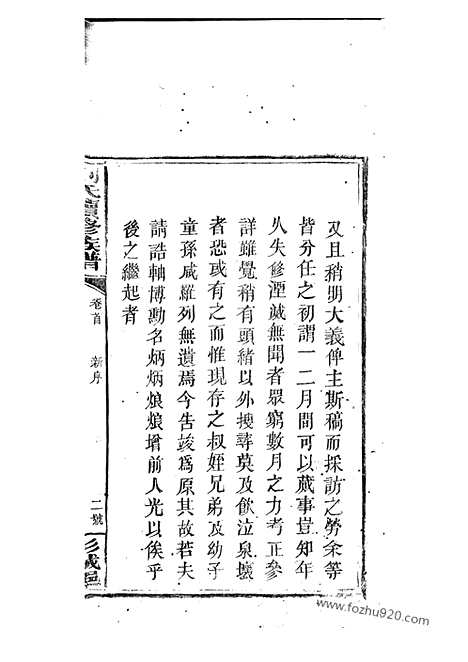 又且稍明大義俾主斯稿而採訪之勞余等
皆分任之初謂一二月間可以蕆事豈知年
久失修湮滅無聞者眾窮數月之力考正參
詳雖覺稍有頭緒以外搜尋莫及飲泣泉壤
者恐或有之而惟現存之叔姪兄弟及幼子
童孫咸羅列無遺焉今告竣爲原其故若夫
請誥軸博勳名炳炳烺烺增前人光以俟乎
後之繼起者
氏續修族譜
卷首 新序
二號
彭城邑
www.fozhu920.com